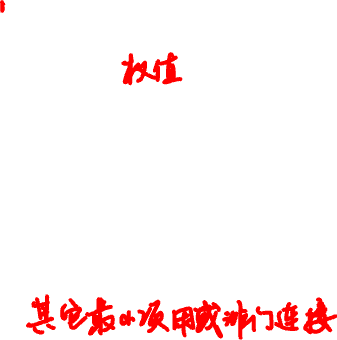 权值
其它最小项用或非门连接